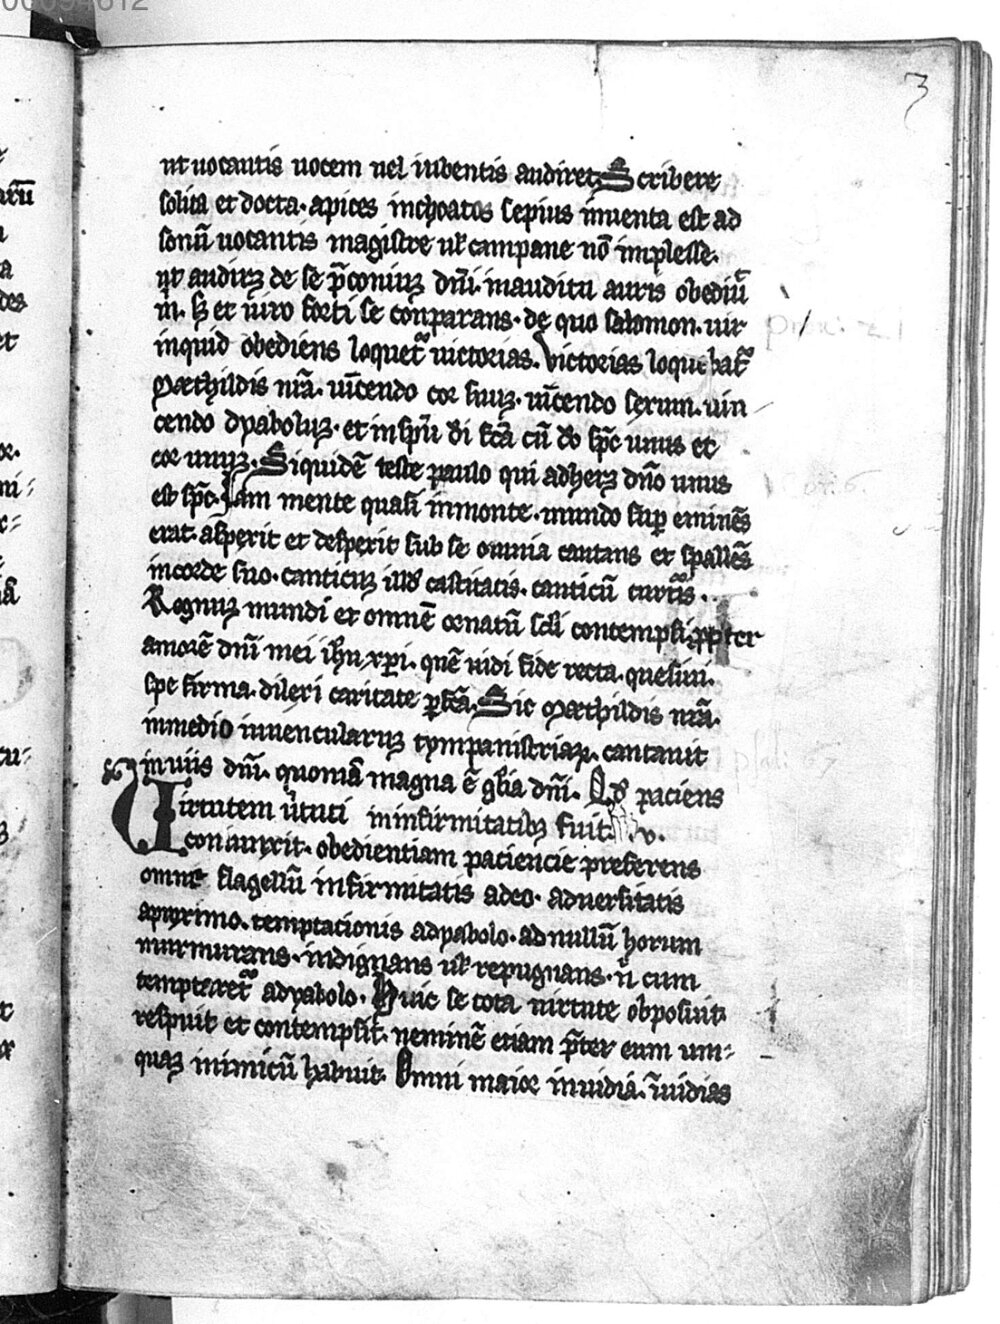 00094612
3
ut uocantis uocem uel iubentis audiret. Scribere
solita et docta. apices inchoatos sepius inuenta est ad
sonū uocantis magistre ul campane nō implesse.
ut audirꝫ de se p̄coniuꝫ dn̄i. inauditu auris obediuͥt
m. sꝫ et uiro forti se conparans. de quo salomon. uir
inquid obediens loquet᷑ uictorias. Victorias loquebat᷑
Mæthildis nr̄a. uīcendo cor suuꝫ. uīcendo serum. uin
cendo dyaboluꝫ. et in sp̄u di fc̄a cū do sp̄c unus et
cor unuꝫ. Siquidē teste paulo qui adherꝫ dn̄o unus
est sp̄c. Jam mente quasi in monte. mundo sup eminēs
erat. asperit et despexit sub se omnia cantans et spallēs
in corde suo. canticuꝫ illd castitatis. canticū
Regnuꝫ mundi et omnē ornatū scl̄i contempsi. ꝓpter
amorē dn̄i mei ih̄u xp̄i. quē uidi fide recta. quesiui.
spe firma. dilexi caritate ꝑfc̄a. Sic Mæthildis nr̄a.
in medio iuuencularuꝫ tympanistriaꝝ. cantauit
in uiis dn̄i. quoniā magna ē gl̄ia dn̄i. Qd paciens
in infirmitatibꝫ fuit. v.
Uirtutem ūtuti
coniunxit. obedientiam paciencie preferens
omne flagellū infirmitatis adeo. aduersitatis
apꝛximo. temptacionis adyabolo. ad nullū horum
murmurans. indignans ul repugnans. n̄ cum
tempteret᷑ adyabolo. Huic se tota uirtute obposuit.
respuit et contempsit. neminē etiam p̄ter eum um
quaꝫ inimicū habuit. Omni maior inuidia. īuidias